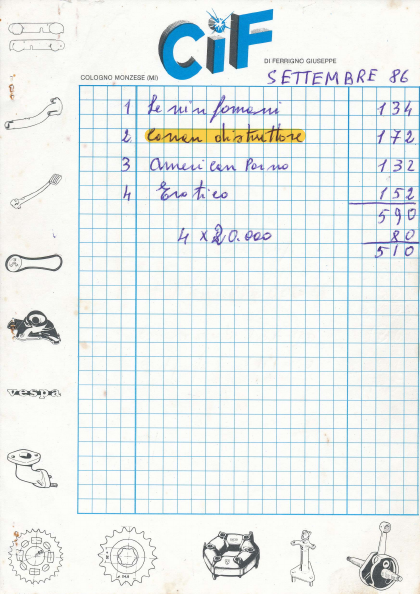 CiF
DI FERRIGNO GIUSEPPE
COLOGNO MONZESE (MI)
SETTEMBRE 86
1 Le nin fomani 134
2 conan distruttore 172
3 American Porno 132
4 Erotico 152
590
4 x 20.000 80
510
vespa